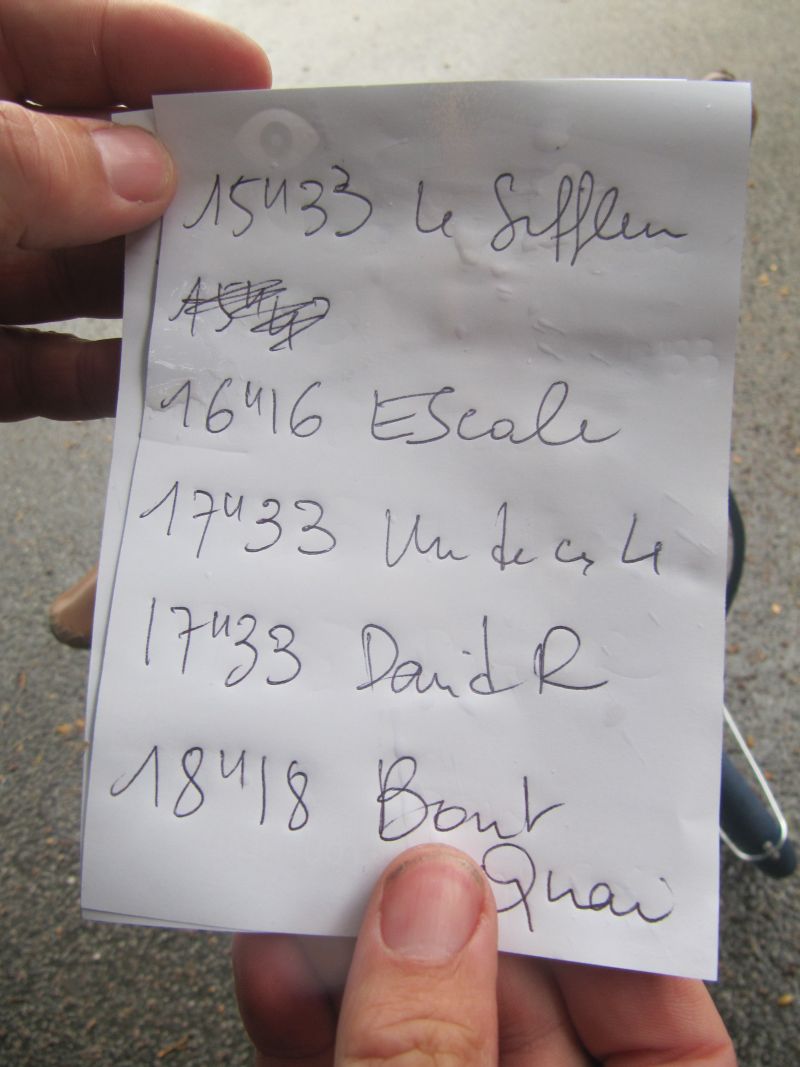 15"33 Le Siffleu
16"16 EScale
17"33 Un de ces 4
17"33 David R
18"18 Bout
Quai